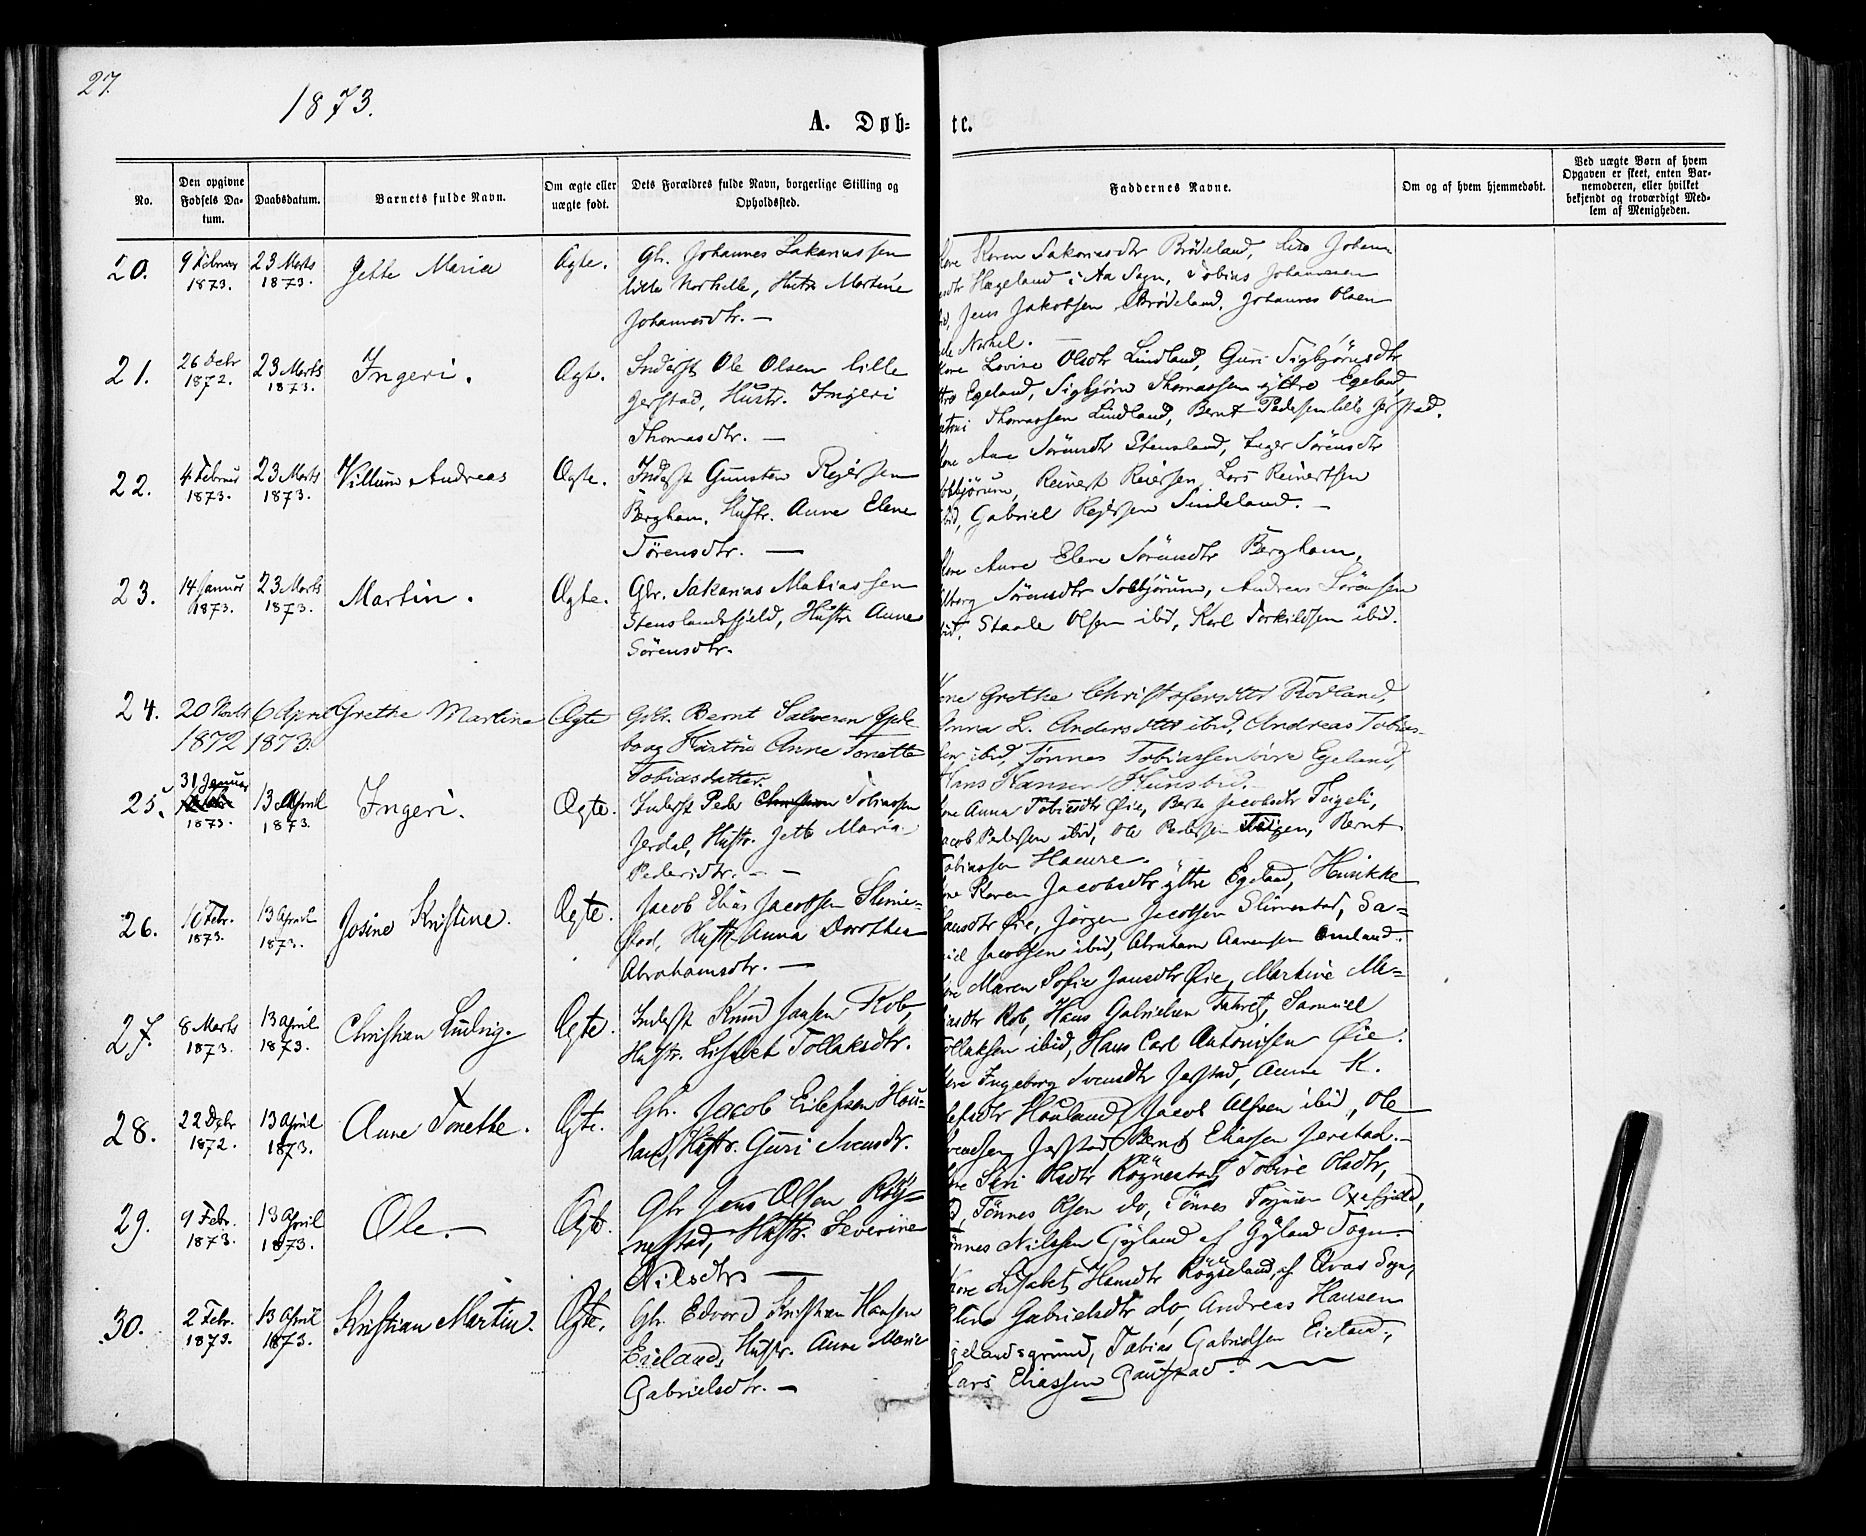 27.
1873.
A. Døb=
te.
No.
Den opgivne Fødsels Datum.
Daabsdatum.
Barnets fulde Navn.
Om ægte eller uægte født.
Dets Forældres fulde Navn, borgerlige Stilling og Opholdssted.
Faddernes Navne.
Om og af hvem hjemmedøbt.
Ved uægte Børn af hvem Opgaven er skeet, enten Barnemoderen, eller hvilket bekjendt og troværdigt Medlem af Menigheden.
20.
9 Februar
1873.
23 Marts
1873.
Jette Maria
Ægte.
Gbr. Johannes Sakariassen
lille Norkelle, Hustr Martine
Johannesdtr. —
Karen Sakariasdtr Brødeland, Johan
Hægeland i Aa Sogn, Tobias Johannesen
Jens Jakobsen Brødeland, Johannes Olsen
21.
26 Debr
1872.
23 Marts
1873.
Ingeri.
Ægt.
Inderst Ole Olsen lille
Jerstad, Hustr. Ingeri
Thomasdtr. —
Lovise Olsdtr Lindland, Guri Sigbjørnsdtr
Egeland, Sigbjørn Thomassen yttre Egeland,
Thomassen Lindland, Bernt Pedersen lille Jerstad.
22.
4 Februar
1873.
23 Marts
1873.
Villum Andreas
Ægte.
Inderst Gunsten Rejersen
Bergham, Hustr. Anne Elene
Sørensdtr. —
Ane Sørensdtr Stensland, Inger Sørensdtr
Reinert Reiersen, Lars Reinertsen
Gabriel Rejersen Sindeland. —
23.
14 Januar
1873.
23 Marts
1873.
Martin.
Ægte.
Gbr. Sakarias Mathiassen
Stenslandsfjeld, Hustr Anne
Sørensdtr.
Kone Anne Elene Sørensdtr Bergham,
Sørensdtr Solbjørum, Andreas Sørensen
ibid, Staale Olsen ibid, Karl Torkildsen ibid.
24.
20
1872
6 April
1873.
Grethe Martine
Ægte
Gbr. Bernt Salvesen
Hustru Anne Tonette
Tobiasdatter.
Kone Grethe Christofersdtr Rødland,
Anna L. Andersdtr ibid, Andreas Tobias-
sen ibid, Tønnes Tobiassen øvre Egeland,
Hans Hansen Hunsbid.
25.
31 Januar
1873.
13 April
1873.
Ingeri.
Ægte.
Inderst Peder Christian Tobiassen
Jerdal, Hustr. Jette Maria
Pedersdtr. —
Anna Tobiasdtr Øie, Berte Jacobsdtr Teigen,
Jacob Pedersen ibid, Ole Pedersen Teigen, Bernt
Tobiassen Haeure.
26.
10 Febr.
1873.
13 April
1873.
Josine Kristine.
Ægte.
Jacob Elias Jacobsen Slime-
stad, Hustr Anna Dorothea
Abrahamsdtr. —
Karen Jacobsdtr yttre Egeland, Henrikke
Øie, Jørgen Jacobsen Slimestad, Ga-
Jacobsen ibid, Abraham Aanensen Omland.
27.
8 Marts
1873.
13 April
1873.
Christian Ludvig.
Ægte.
Inderst Knud Jansen Rob,
Hustr. Lisabet Tollaksdtr.
Maren Sofie Jansdtr Øie, Martine Ma-
Rob, Hans Gabrielsen Fahret, Samuel
Tollaksen ibid, Hans Carl Antonisen Øie.
28.
22 Debr
1872.
13 April
1873.
Anne Tonette.
Ægte.
Gbr. Jacob Eilefsen Hau-
land, Hustr. Guri Svensdtr.
Ingeborg Svensdtr Jerstad, Anne K.
Hauland, Jacob Alfsen ibid, Ole
Svendsen Jerstad, Bernt Eliasen Jerstad. —
29.
9 Febr.
1873.
13 April
1873.
Ole. —
Ægte.
Gbr Jens Olsen Røy-
nestad, Hustr. Severine
Nilsdtr —
Siri Olsdtr Røynestad, Tobine Olsdtr,
Tønnes Olsen do, Tønnes Torjusen Oxefjeld,
Tønnes Nilssen Gyland af Gyland Sogn.
30.
2 Febr.
1873.
13 April
1873.
Kristian Martin.
Ægte.
Gbr. Edvard Kristian Hansen
Eieland, Hustr. Anne Marie
Gabrielsdtr. —
Kone Lisabet Hansdtr Røyseland af Qvas Sogn,
Gabrielsdtr do, Andreas Hansen
Tobias Gabrielsen Eieland,
Lars Eliassen Gaustad. —